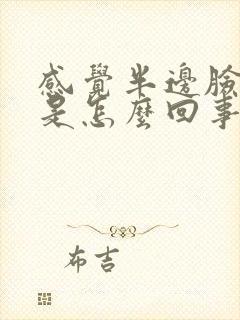 感覺半邊臉
是怎麼回事
布吉